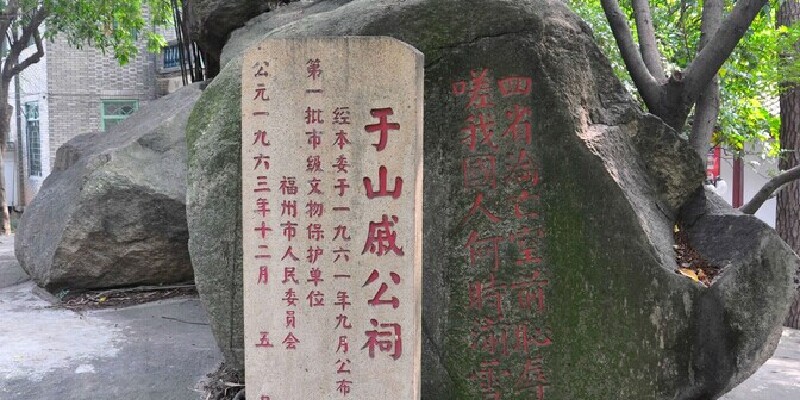 于山戚公祠
经本委于一九六一年九月公布
第一批市级文物保护单位
福州市人民委员会
公元一九六三年十二月五
四省亡前恥辱
嗟我國人何時湔雪